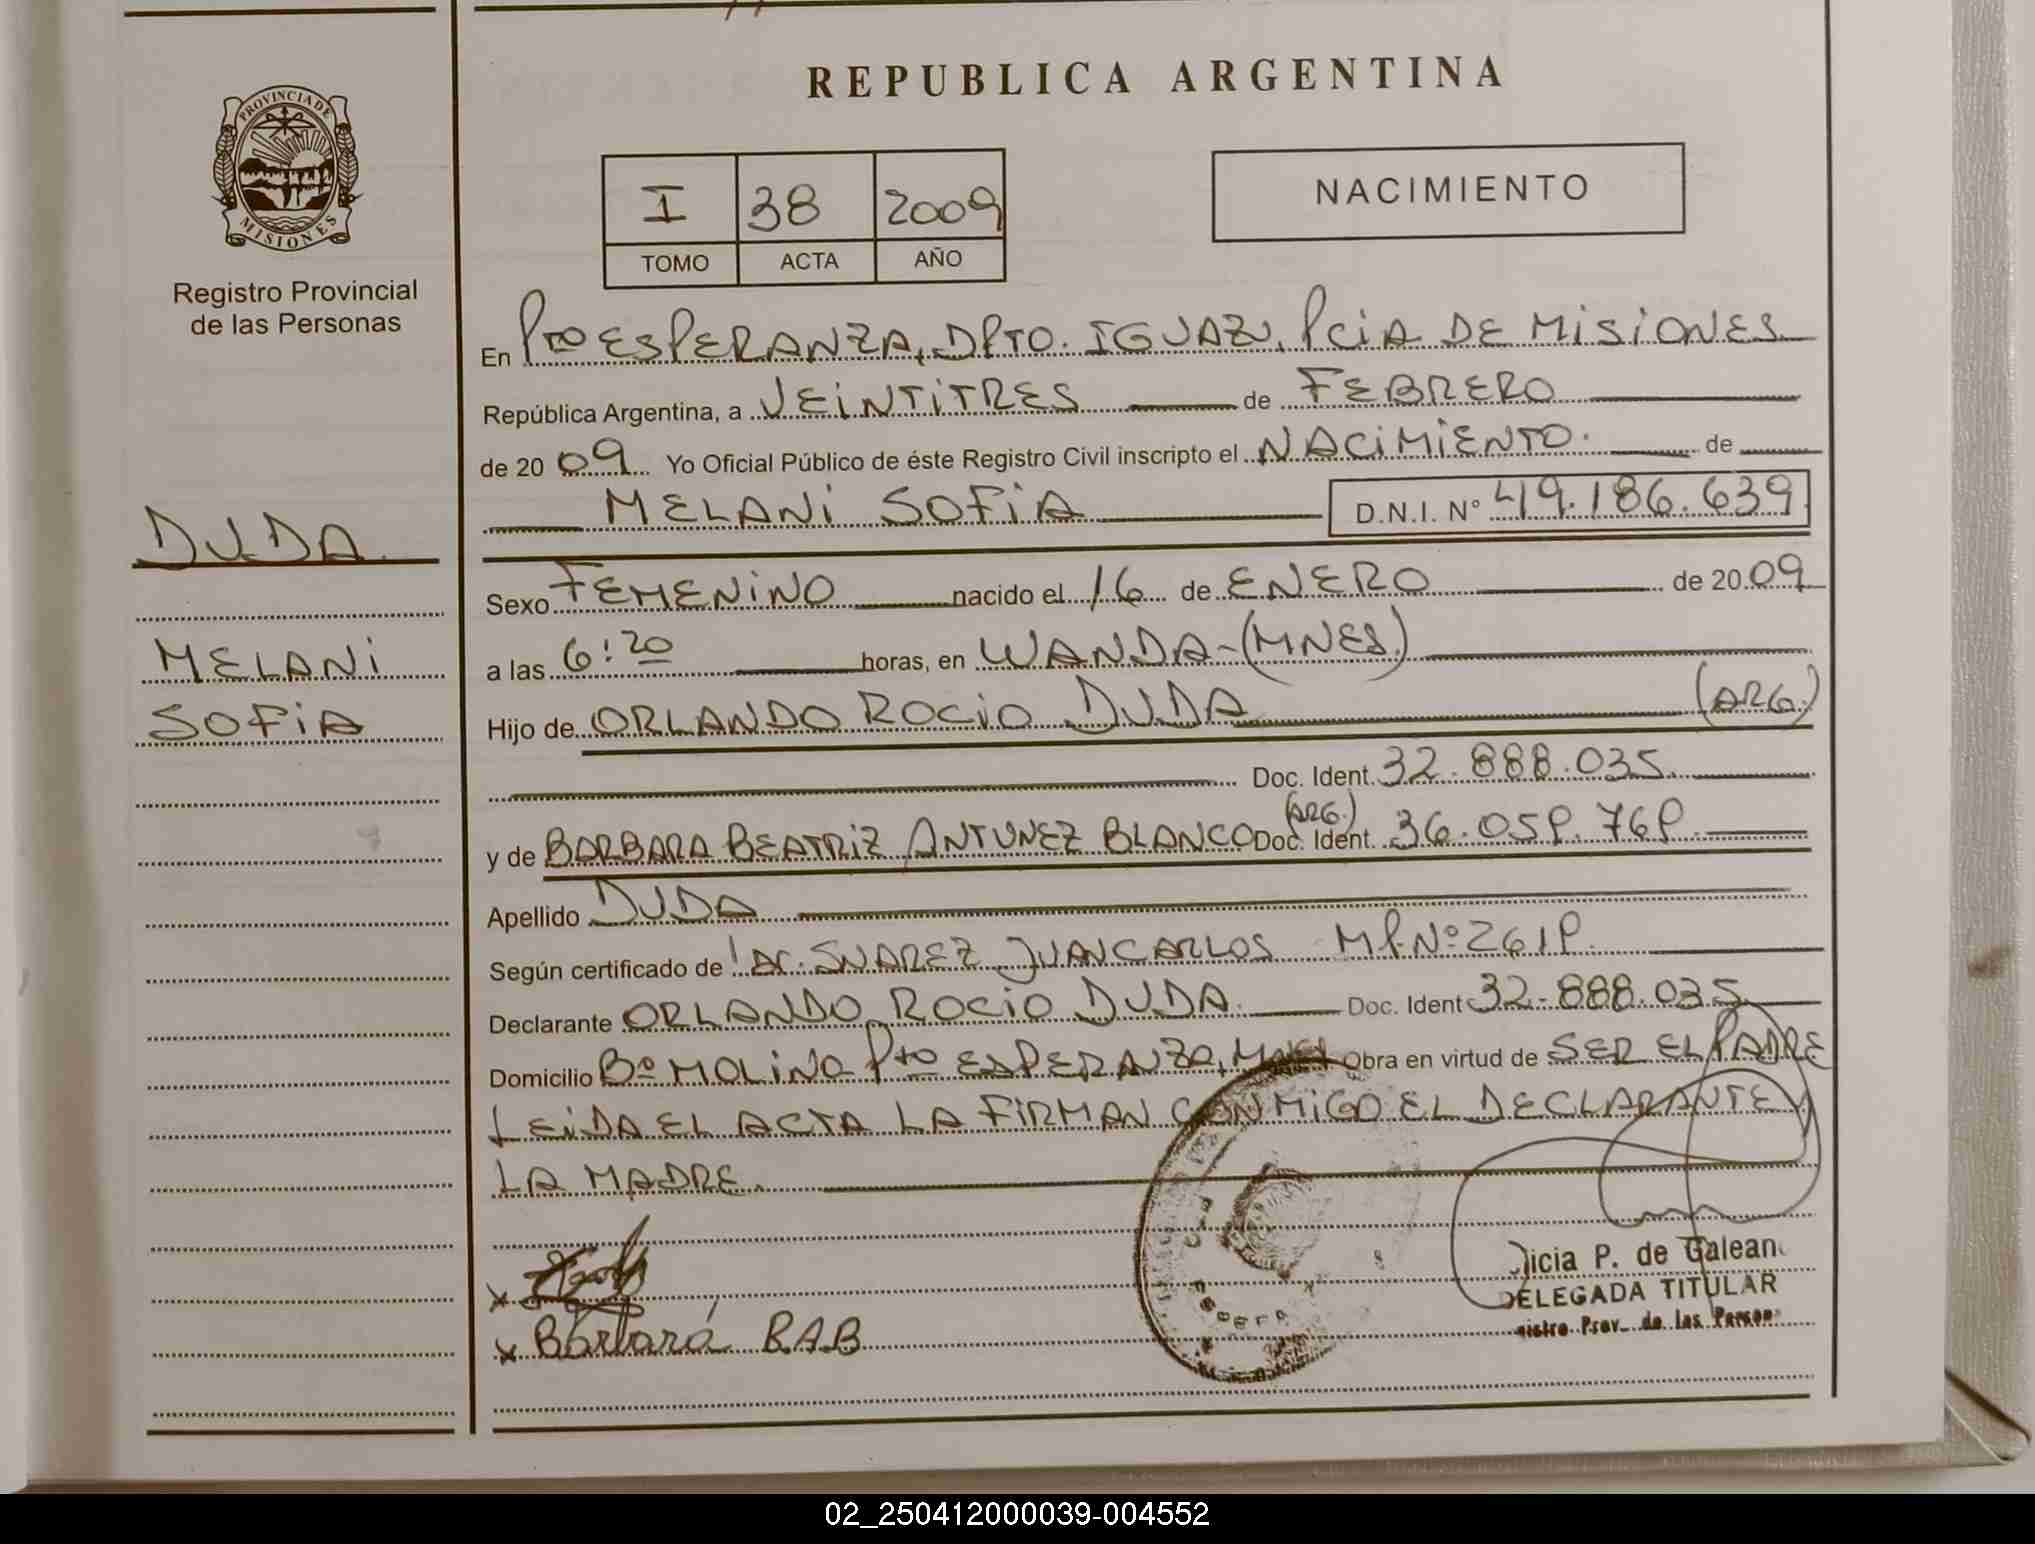 REPUBLICA ARGENTINA
PROVINCIA DE
MISIONES
Registro Provincial
de las Personas
I 38 2009
TOMO ACTA AÑO
NACIMIENTO
En Pto ESPERANZA, DPTO. IGUAZU, PCiA DE MiSiONES
República Argentina, a VEiNTiTRES de FEBRERO
de 20 09 Yo Oficial Público de éste Registro Civil inscripto el NACiMiENTO. de
MELANi SOFiA D.N.I. Nº 49.186.639
DUDA
MELANi
SOFiA
Sexo FEMENiNO nacido el 16 de ENERO de 20 09
a las 6:20 horas, en WANDA-(MNES.)
Hijo de ORLANDO ROCiO DUDA (ARG.)
Doc. Ident. 32.888.035
y de BARBARA BEATRiZ ANTUNEZ BLANCO (ARG.) Doc. Ident. 36.059.769
Apellido DUDA
Según certificado de SUAREZ JUAN CARLOS MP.Nº 2619
Declarante ORLANDO ROCiO DUDA. Doc. Ident 32.888.035
Domicilio Bº MOLiNO Pto ESPERANZA, Obra en virtud de SER EL PADRE
LEiDA EL ACTA LA FiRMAN CONMiGO EL DECLARANTE Y
LA MADRE.
x
x Bárbara B.A.B
icia P. de Galean
DELEGADA TITULAR
istro Prov. de las Person
02_250412000039-004552